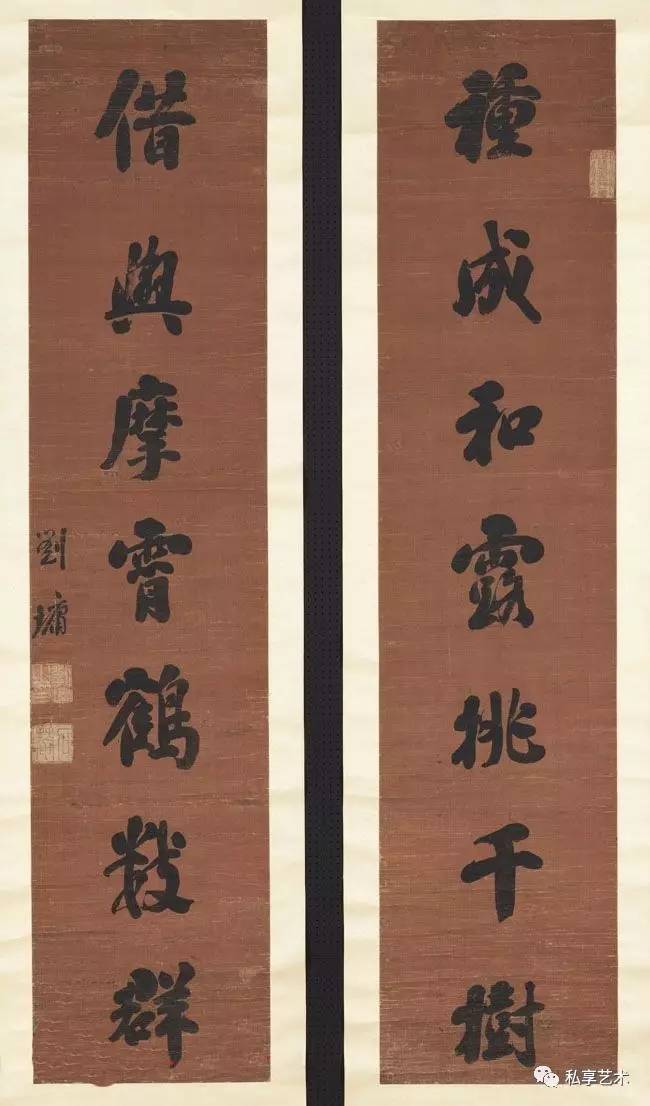 種成和露桃千樹
借與摩霄鶴數群
劉墉
私享艺术